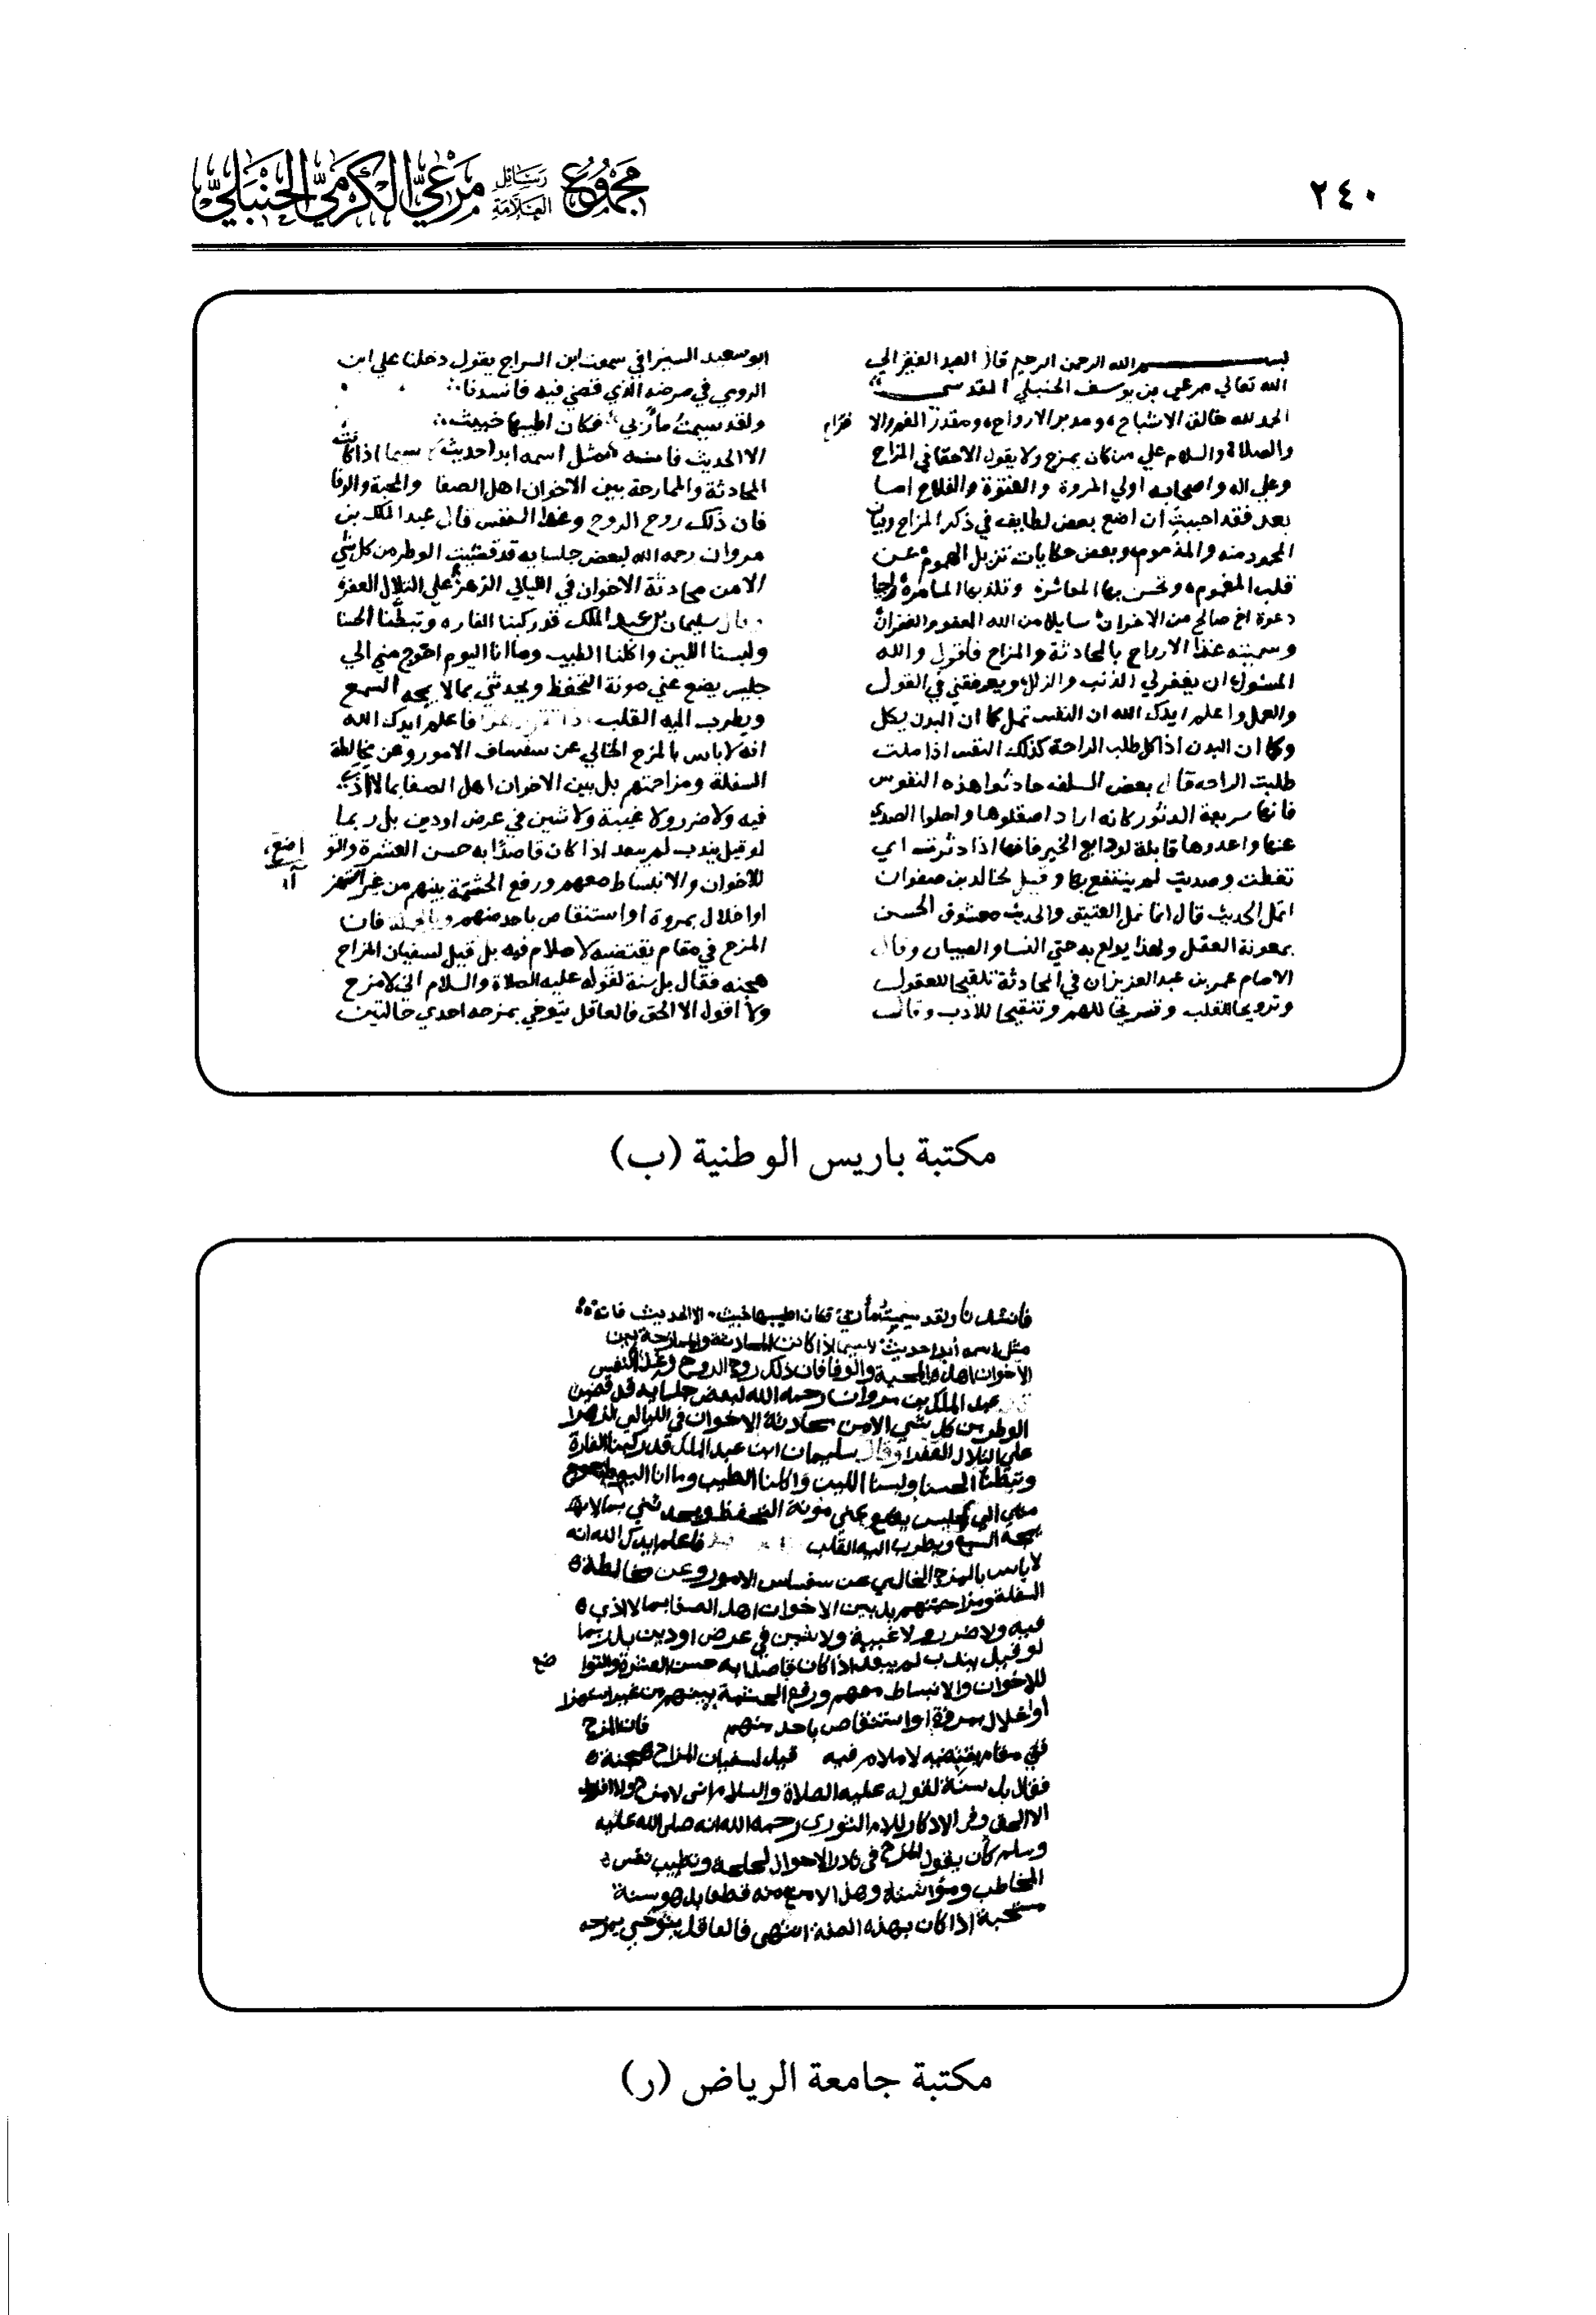 ٢٤٠
مجموع رسائل العلامة مرعي الكرمي الحنبلي
بسم الله الرحمن الرحيم قال العبد الفقير الي
الله تعالي مرعي بن يوسف الحنبلي المقدسي
الحمد لله خالق الاشباح ومدبر الارواح ومقدر
والصلاة والسلام علي من كان يمزح ولا يقول الا حقا في المزاح
وعلي اله واصحابه اولي المروة والفتوة والفلاح اما
بعد فقد احببت ان اضع بعض لطايف في ذكر المزاح وبيان
المحمود منه والمذموم وبعض حكايات تزيل الهموم عن
قلب المغموم وتحسن بها المعاشرة وتلذ بها المسامرة راجيا
دعوة اخ صالح من الاخوان سايلا من الله العفو والغفران
وسميته غذا الارواح بالمحادثة والمزاح فاقول والله
المسئول ان يغفر لي الذنب والزلل ويعرفقني في القول
والعمل واعلم ايدك الله ان النفس تمل كما ان البدن يكل
وكما ان البدن اذا كل طلب الراحة كذلك النفس اذا ملت
طلبت الراحه قال بعض السلف حادثوا هذه النفوس
فانها سريعة الدثور كانه اراد اصقلوها واجلوا الصدي
عنها واعدوها قابلة لودايع الخير فانها اذا دثرت اي
تغطت وصديت لم ينتفع بها وقيل لخالد بن صفوان
اتمل الحديث قال انما يمل العتيق والحديث معشوق الحسن
بمعونة العقل ولهذا يولع به حتي النسا والصبيان وقال
الامام عمر بن عبد العزيز ان في المحادثة تلقيحا للعقول
وترويحا للقلب وتسريحا للهم وتنقيحا للادب وقال
ابو سعيد السيرافي سمعت ابن السراج يقول دخلنا علي ابن
الرومي في مرضه الذي قضي فيه فانشدنا
ولقد سيمت مآربي فكان اطيبها خبيث
الا الحديث فانه مثل اسمه ابدا حديث سيما اذا كانت
المحادثة والممازحة بين الاخوان اهل الصفا والمحبة والوفا
فان ذلك روح الروح وغذا النفس قال عبد الملك بن
مروان رحمه الله لبعض جلسايه قد قضيت الوطر من كل شي
الا من محادثة الاخوان في الليالي الزهر علي التلال العفر
وقال سليمان بن عبد الملك قد ركبنا الفاره وتبطنا الحسنا
ولبسنا اللين واكلنا الطيب وما انا اليوم احوج مني الي
جليس يضع عني مونة التحفظ ويحدثني بما لا يمجه السمع
ويطرب اليه القلب فاعلم ايدك الله
انه لا باس بالمزح الخالي عن سفساف الامور وعن مخالطة
السفلة ومزاحمتهم بل بين الاخوان اهل الصفا بما لا اذي
فيه ولا ضرر ولا غيبة ولا شين في عرض او دين بل ربما
لو قيل يندب لم يبعد اذا كان قاصدا به حسن العشرة والتو
اضع
للاخوان والانبساط معهم ورفع الحشمة بينهم من غير
او اخلال بمروة او استنقاص باحد منهم وبالجملة فان
المزح في مقام يقتضيه لا ملام فيه بل قيل لسفيان المزاح
هجنه فقال بل سنة لقوله عليه الصلاة والسلام اني لامزح
ولا اقول الا الحق فالعاقل يتوخي بمزحه احدي حالتين
مكتبة باريس الوطنية (ب)
فانشدنا ولقد سيمت مآربي فكان اطيبها خبيث الا الحديث فانه
مثل اسمه ابدا حديث لا سيما اذا كانت المحادثة والممازحة بين
الاخوان اهل والمحبة والوفا فان ذلك روح الروح وغذا النفس
عبد الملك بن مروان رحمه الله لبعض جلسايه قد قضيت
الوطر من كل شي الا من محادثة الاخوان في الليالي الزهرا
علي التلال العفرا وقال سليمان ابن عبد الملك قد ركبنا الفارة
وتبطنا الحسنا ولبسنا اللين واكلنا الطيب وما انا اليوم احوج
مني الي جليس يضع عني مونة التحفظ ويحدثني بما لا
يمجه السمع ويطرب اليه القلب فاعلم ايدك الله انه
لا باس بالمزح الخالي عن سفساس الامور وعن مخالطة
السفلة ومزاحمتهم بل بين الاخوان اهل الصفا بما لا اذي
فيه ولا ضرر ولا غيبة ولا شين في عرض او دين بل ربما
لو قيل يندب لم يبعد اذا كان قاصدا به حسن العشرة والتوا
ضع
للاخوان والانبساط معهم ورفع الحشمة بينهم من غير استهزا
او اخلال بمروة او استنقاص باحد منهم فان المزح
في مقام يقتضيه لا ملام فيه قيل لسفيان المزاح هجنة
فقال بل سنة لقوله عليه الصلاة والسلام اني لامزح ولا اقول
الا الحق وفي الاذكار للامام النووي رحمه الله انه صلي الله عليه
وسلم كان يقول المزح في نادر الاحوال لمصلحة وتطييب نفس
المخاطب ومؤانسته وهذا لا منع منه قطعا بل هو سنة
مستحبة اذا كان بهذه الصفة انتهى فالعاقل يتوخي بمزحه
مكتبة جامعة الرياض (ر)